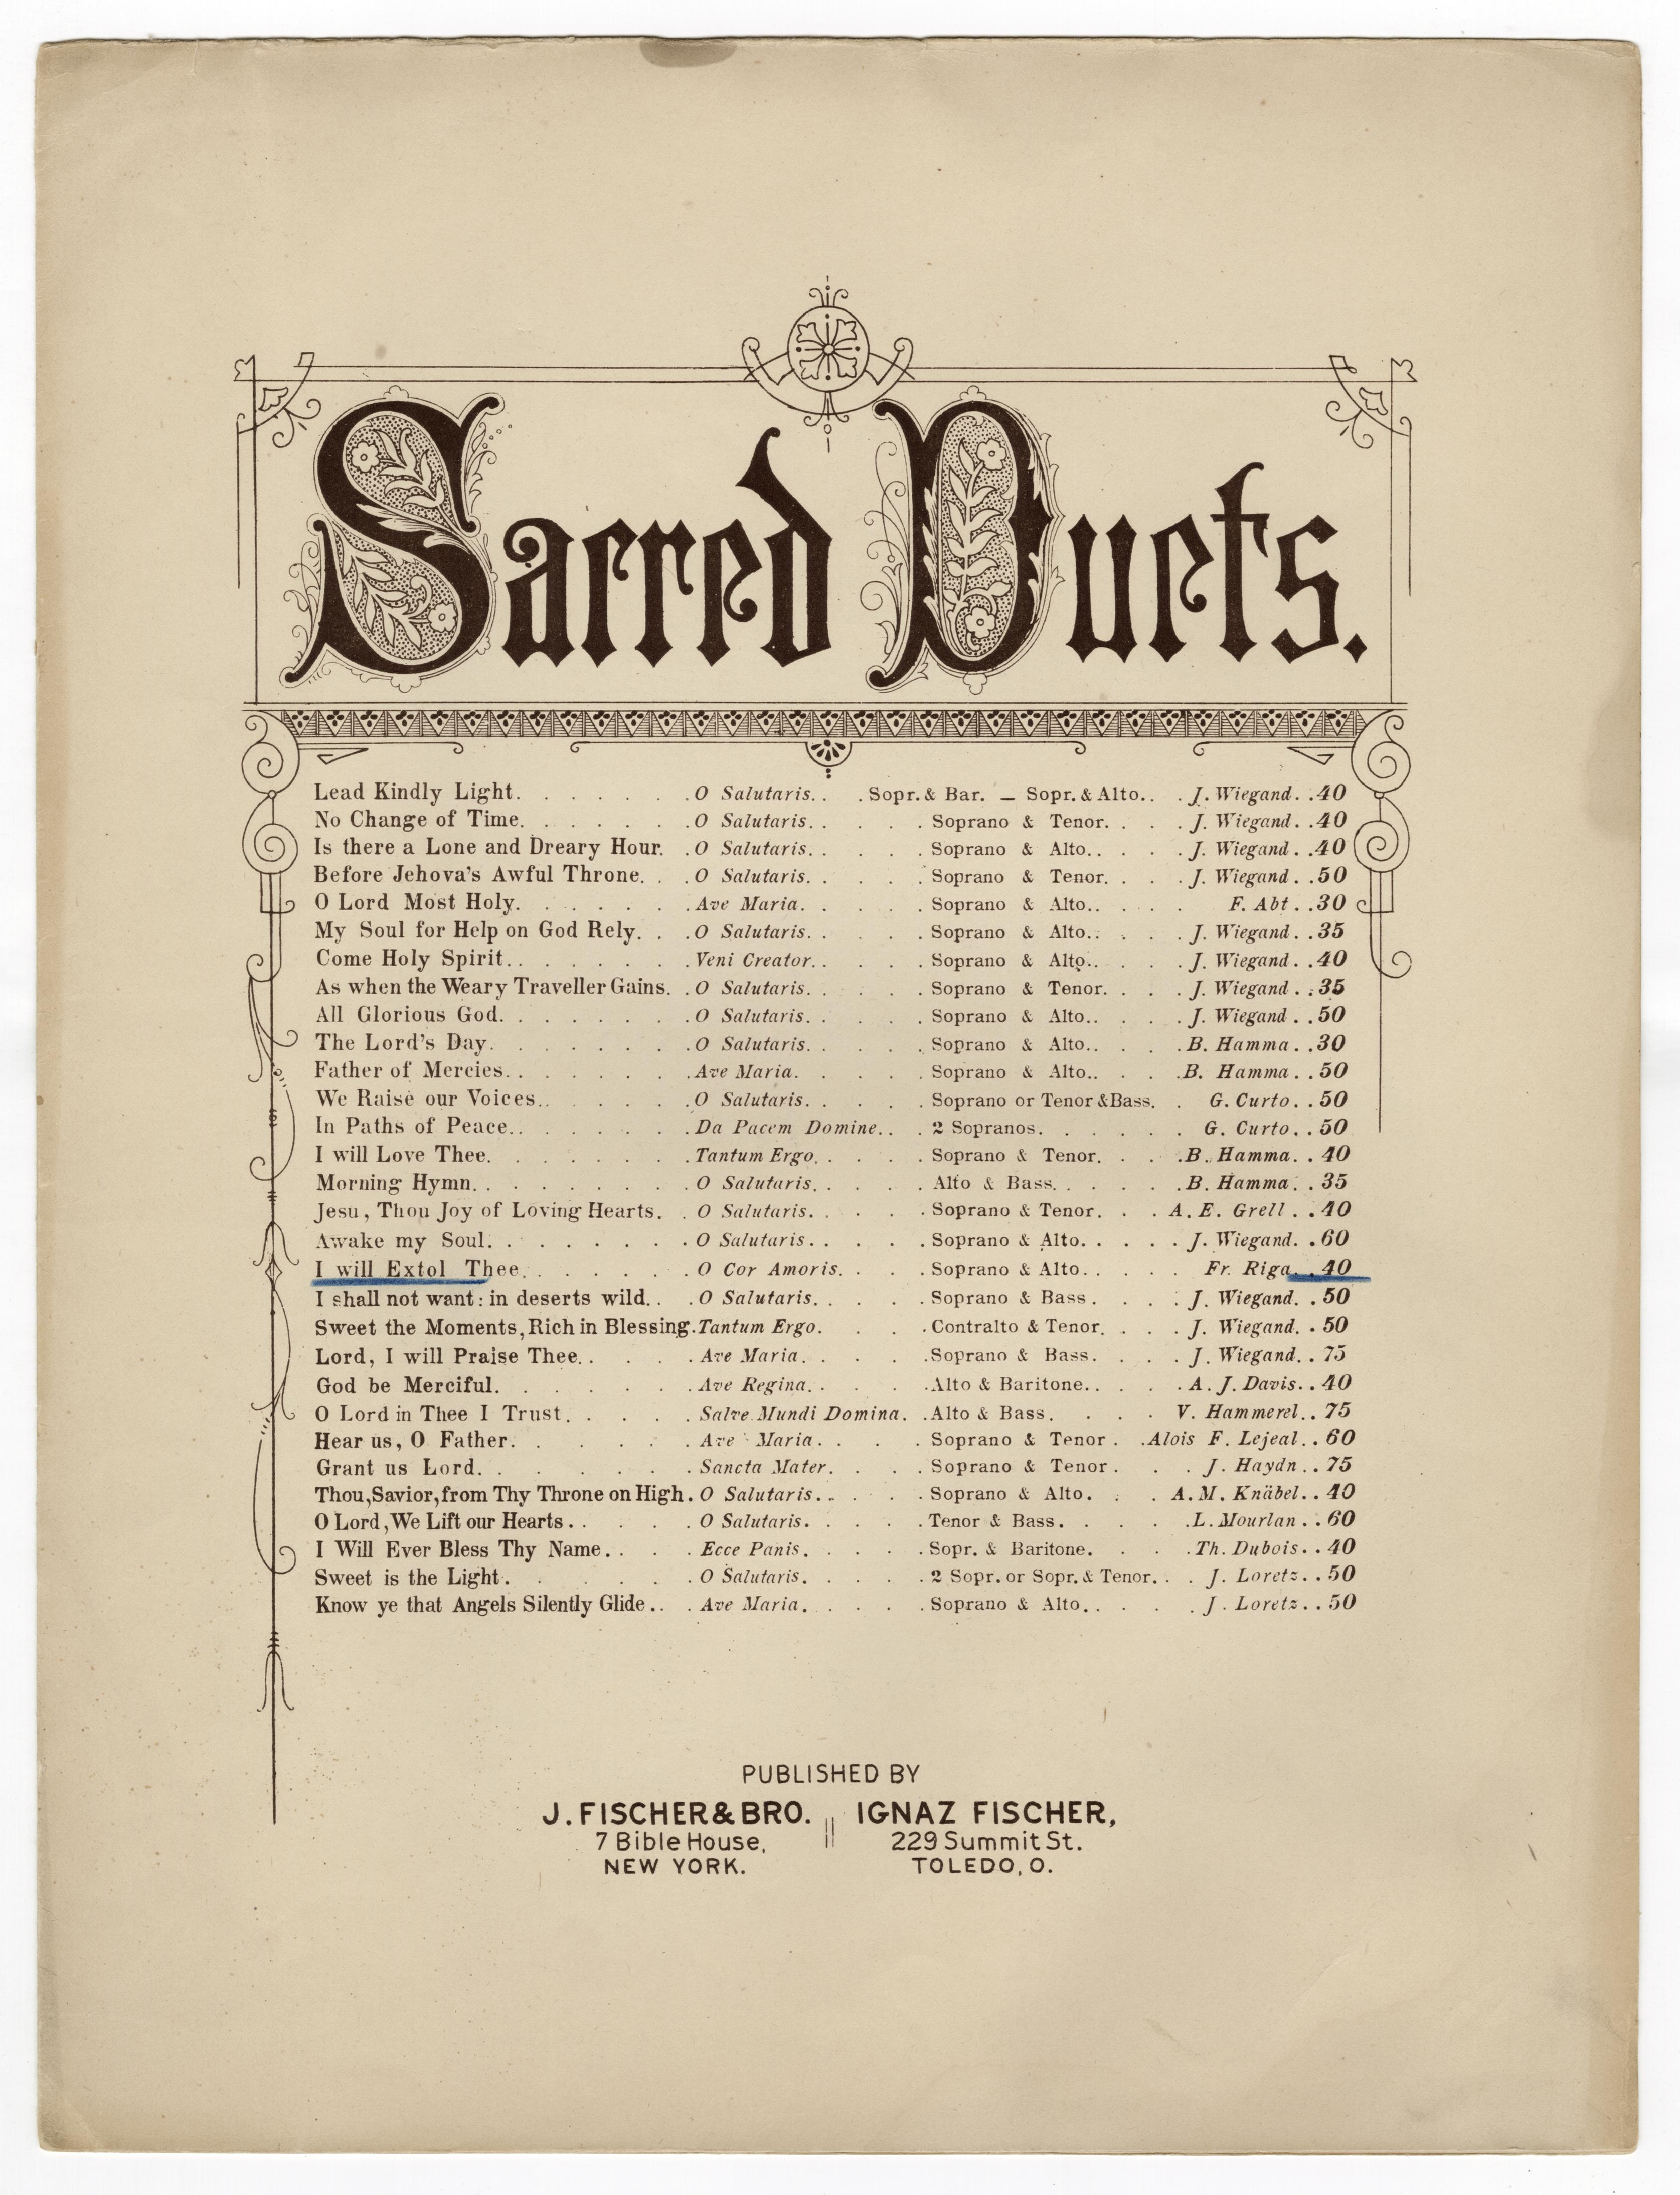 Sacred Duets.
Lead Kindly Light. . . . . . . O Salutaris. . . Sopr. & Bar. – Sopr. & Alto. . . J. Wiegand. . 40
No Change of Time. . . . . . . O Salutaris. . . . . . Soprano & Tenor. . . . J. Wiegand. . 40
Is there a Lone and Dreary Hour. . O Salutaris. . . . . . Soprano & Alto. . . . . J. Wiegand. . 40
Before Jehova's Awful Throne. . . O Salutaris. . . . . . Soprano & Tenor. . . . J. Wiegand. . 50
O Lord Most Holy. . . . . . . Ave Maria. . . . . Soprano & Alto. . . . . F. Abt. . 30
My Soul for Help on God Rely. . . O Salutaris. . . . . . Soprano & Alto. . . . . J. Wiegand. . 35
Come Holy Spirit. . . . . . . . Veni Creator. . . . . . Soprano & Alto. . . . . J. Wiegand. . 40
As when the Weary Traveller Gains. . O Salutaris. . . . . . Soprano & Tenor. . . . J. Wiegand. . 35
All Glorious God. . . . . . . . O Salutaris. . . . . . Soprano & Alto. . . . . J. Wiegand. . 50
The Lord's Day. . . . . . . . O Salutaris. . . . . . Soprano & Alto. . . . . B. Hamma. . 30
Father of Mercies. . . . . . . . Ave Maria. . . . . Soprano & Alto. . . . . B. Hamma. . 50
We Raise our Voices. . . . . . . O Salutaris. . . . . . Soprano or Tenor & Bass. . G. Curto. . 50
In Paths of Peace. . . . . . . . Da Pacem Domine. . . 2 Sopranos. . . . . . G. Curto. . 50
I will Love Thee. . . . . . . . Tantum Ergo. . . . . Soprano & Tenor. . . . B. Hamma. . 40
Morning Hymn. . . . . . . . . O Salutaris. . . . . Alto & Bass. . . . . . B. Hamma. . 35
Jesu, Thou Joy of Loving Hearts. . O Salutaris. . . . . Soprano & Tenor. . . . A. E. Grell . . 40
Awake my Soul. . . . . . . . . O Salutaris. . . . . Soprano & Alto. . . . . J. Wiegand. . 60
I will Extol Thee. . . . . . . O Cor Amoris. . . . . Soprano & Alto. . . . . Fr. Riga. . 40
I shall not want: in deserts wild. . . O Salutaris. . . . . Soprano & Bass. . . . . J. Wiegand. . 50
Sweet the Moments, Rich in Blessing. Tantum Ergo. . . . Contralto & Tenor. . . . J. Wiegand. . 50
Lord, I will Praise Thee. . . . . . Ave Maria. . . . . Soprano & Bass. . . . . J. Wiegand. . 75
God be Merciful. . . . . . . . Ave Regina. . . . . Alto & Baritone. . . . . A. J. Davis. . 40
O Lord in Thee I Trust. . . . . . Salve Mundi Domina. . Alto & Bass. . . . V. Hammerel. . 75
Hear us, O Father. . . . . . . Ave Maria. . . . . Soprano & Tenor . . Alois F. Lejeal. . 60
Grant us Lord. . . . . . . . Sancta Mater. . . . Soprano & Tenor . . . J. Haydn. . 75
Thou, Savior, from Thy Throne on High. O Salutaris. . . . . Soprano & Alto. . . A. M. Knäbel. . 40
O Lord, We Lift our Hearts. . . . . O Salutaris. . . . . Tenor & Bass. . . . . L. Mourlan . . 60
I Will Ever Bless Thy Name. . . . Ecce Panis. . . . . Sopr. & Baritone. . . . Th. Dubois. . 40
Sweet is the Light. . . . . . . O Salutaris. . . . . 2 Sopr. or Sopr. & Tenor. . . J. Loretz. . 50
Know ye that Angels Silently Glide. . . Ave Maria. . . . . Soprano & Alto. . . . . J. Loretz. . 50
PUBLISHED BY
J. FISCHER & BRO. IGNAZ FISCHER,
7 Bible House, 229 Summit St.
NEW YORK. TOLEDO, O.